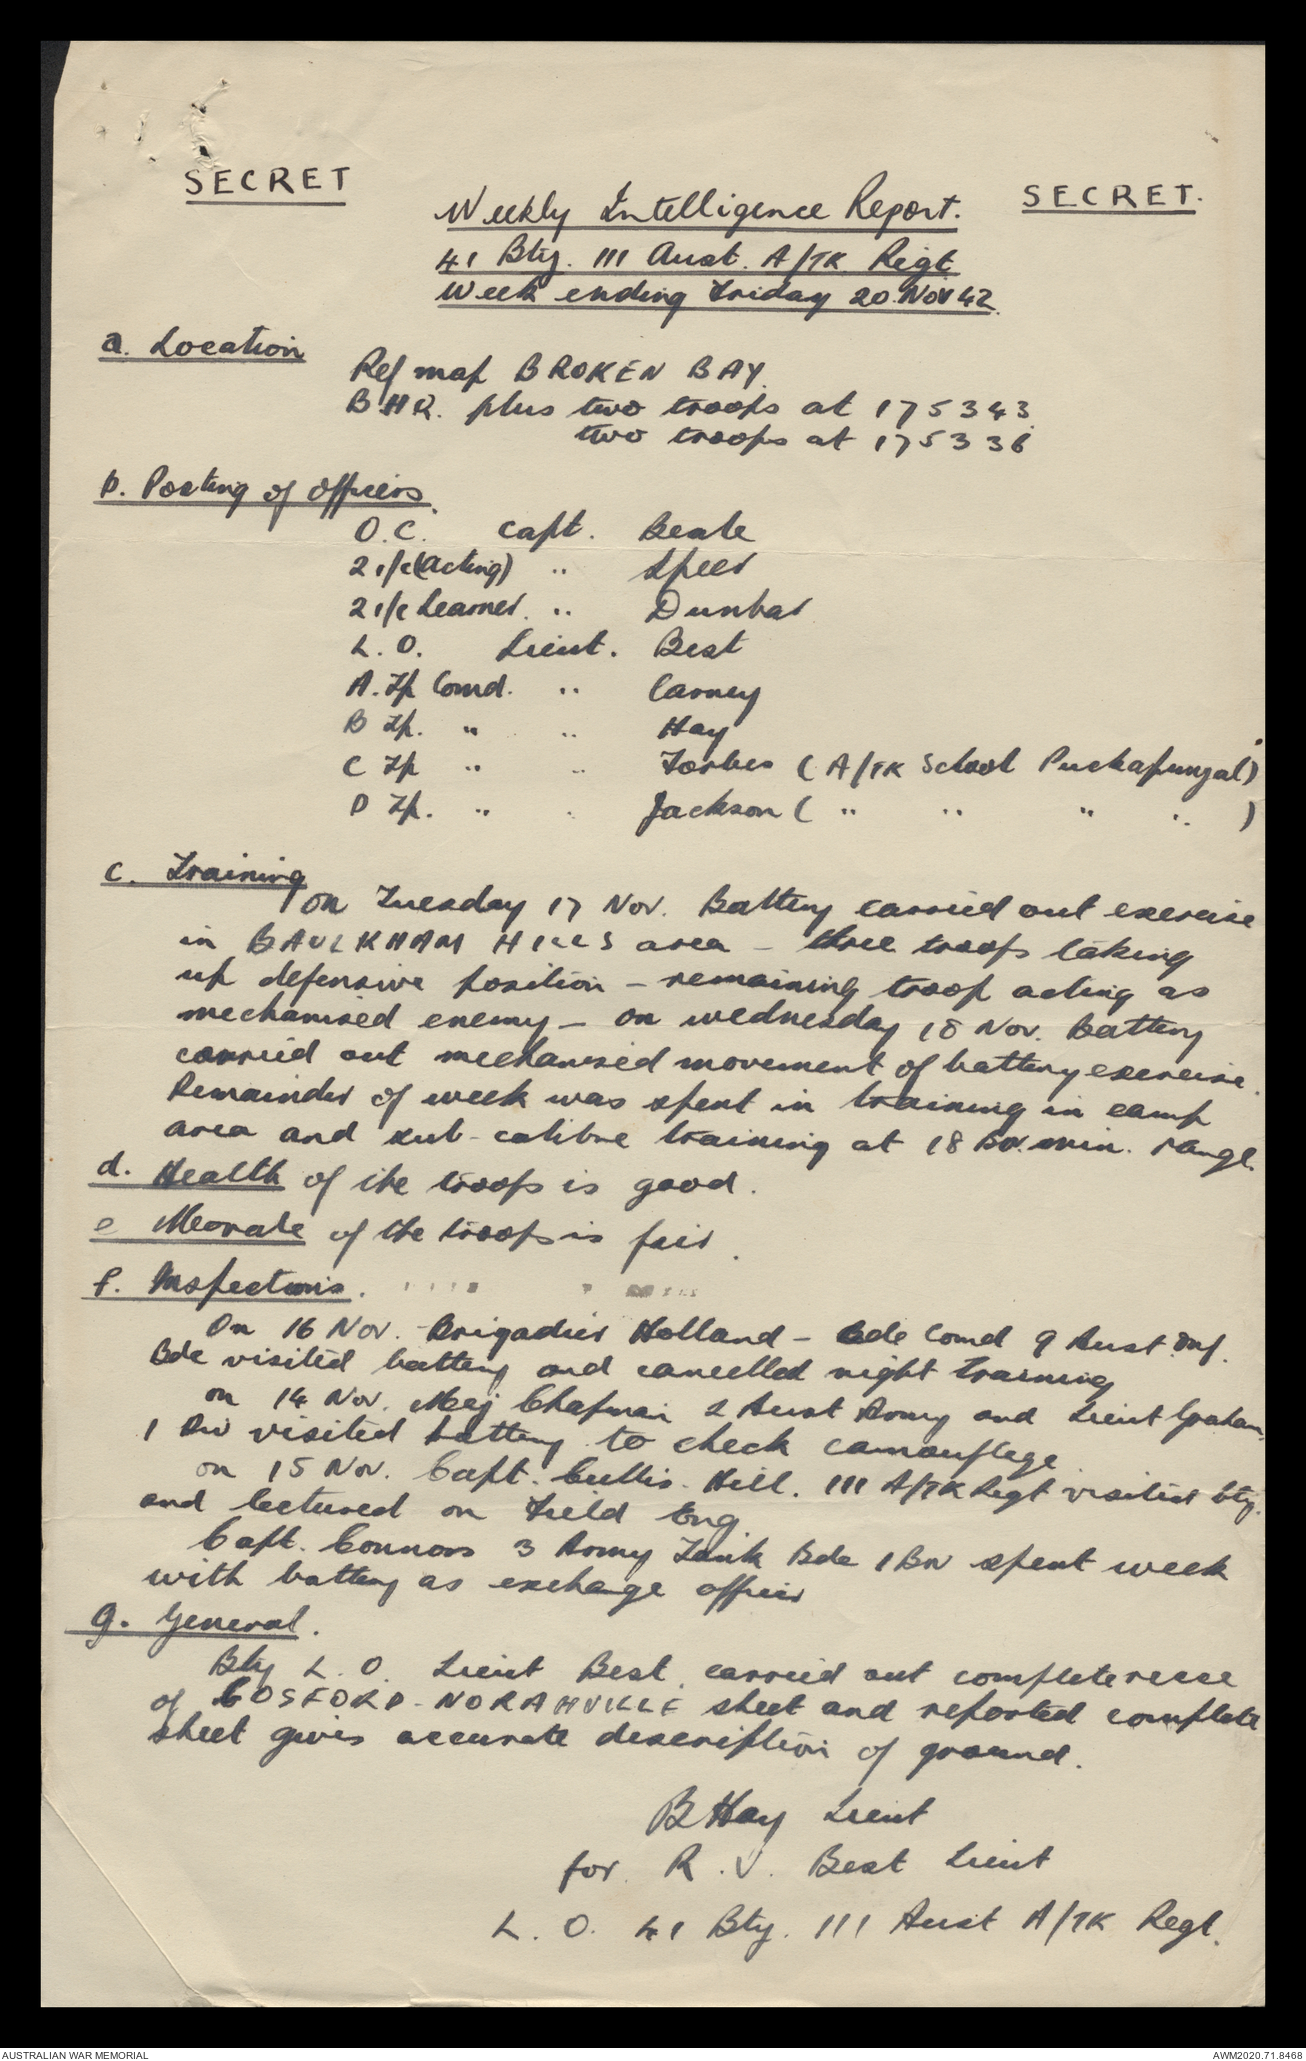 SECRET
SECRET.
Weekly Intelligence Report.
41 Bty. 111 Aust. A/TK Regt
Week ending Friday 20 Nov 42.
a. Location
Ref map BROKEN BAY.
B.H.Q. plus two troops at 175343
two troops at 175336
b. Posting of Officers.
O.C. Capt. Beale
2 i/c (Acting) " Speer
2 i/c Learner. " Dunbar
L.O. Lieut. Best
A. Tp Comd. " Carney
B Tp. " " Hay
C Tp " " Forbes (A/TK School Puckapunyal)
D Tp. " " Jackson ( " " " " )
c. Training
On Tuesday 17 Nov. Battery carried out exercise
in BAULKHAM HILLS area - three troops taking
up defensive position - remaining troop acting as
mechanised enemy - on Wednesday 18 Nov. Battery
carried out mechanised movement of battery exercise.
Remainder of week was spent in training in camp
area and sub-calibre training at 18 Bn. min. range.
d. Health of the troops is good.
e Morale of the troops is fair.
f. Inspections.
On 16 Nov. Brigadier Holland - Bde Comd 9 Aust. Inf.
Bde visited battery and cancelled night training
on 14 Nov. Maj Chapman 2 Aust Army and Lieut Graham,
1 Div visited battery to check camouflege
on 15 Nov. Capt. Cullis-Hill. 111 A/TK Regt visited bty.
and lectured on Field Eng.
Capt. Connors 3 Army Tank Bde 1 Bn spent week
with battery as exchange officer
g. General.
Bty L.O. Lieut Best carried out complete recce
of GOSFORD - NORAHVILLE sheet and reported complete
sheet gives accurate description of ground.
B Hay Lieut
for R.V. Best Lieut
L.O. 41 Bty. 111 Aust A/TK Regt.
AUSTRALIAN WAR MEMORIAL
AWM2020.71.8468